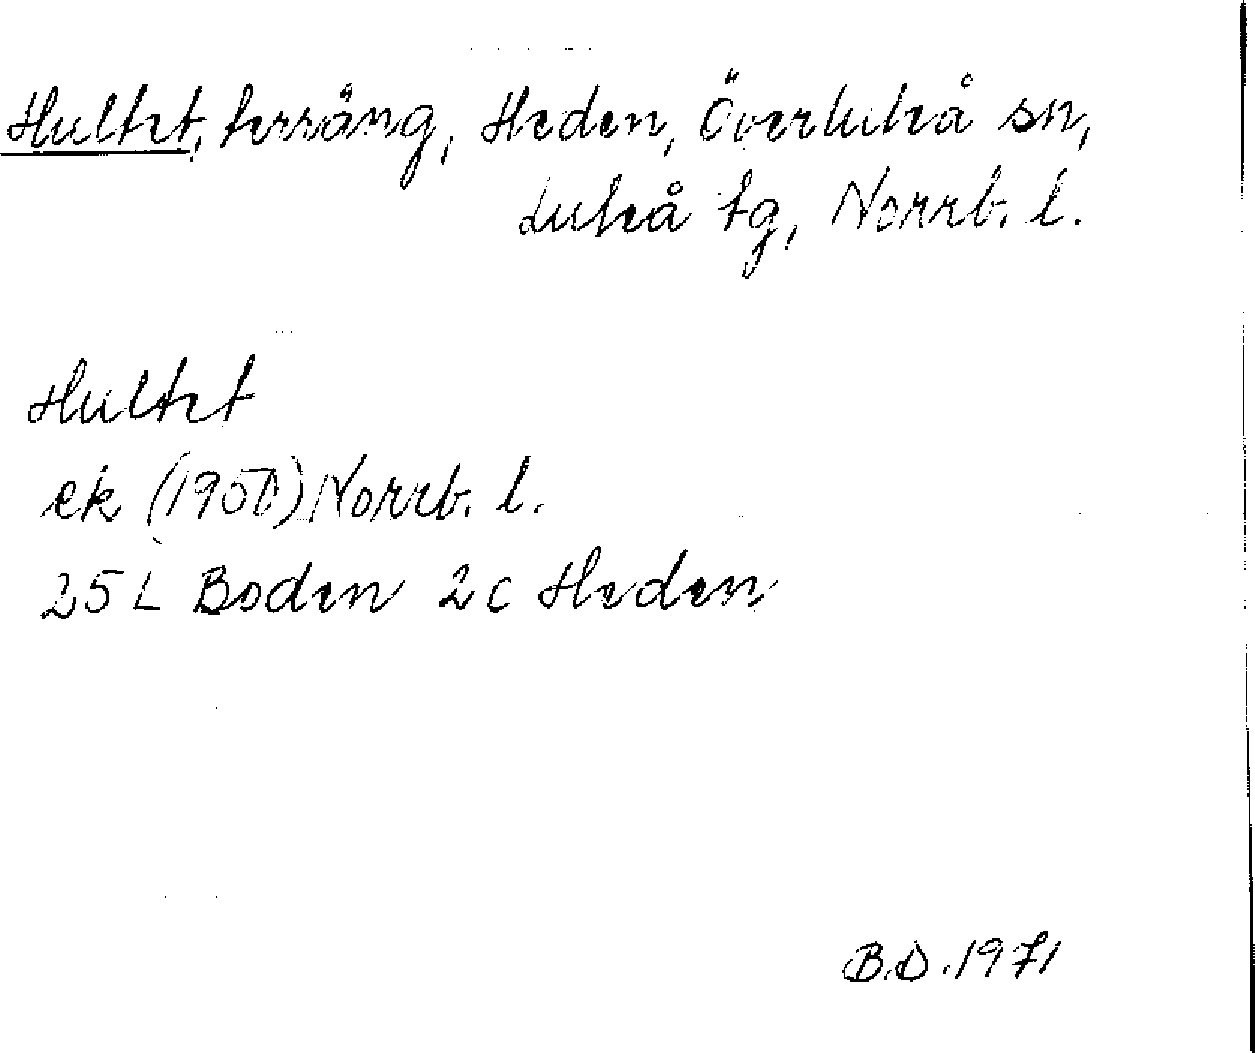 Hultet, terräng, Heden, Överluleå sn,
Luleå tg, Norrb. l.
Hultet
ek (1950) Norrb. l.
25 L Boden 2 c Heden
B.D. 1971